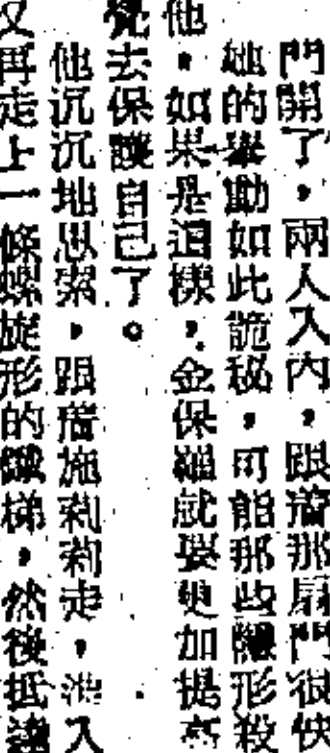 門開了，兩人入內，跟着那扇門很快
她的舉動如此詭秘，可能那些隱形殺
他。如果是這樣，金保羅就要更加提高
覺去保護自己了。
他沉沉地思索，跟着施莉莉走，進入
又再走上一條螺旋形的鐵梯，然後抵達